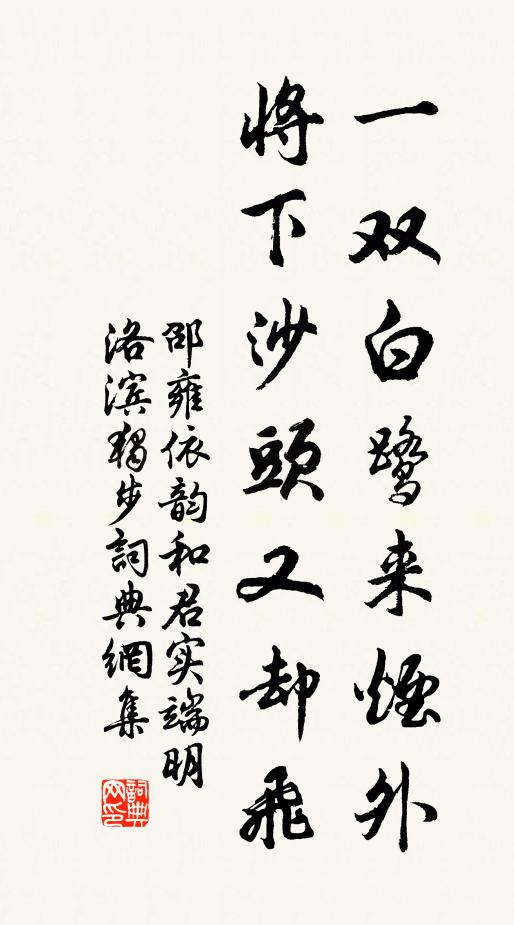 一双白鹭来煙外
将下沙頭又却飛
邵雍依韵和君实端明
洛滨獨步詞典網集
詞典网印